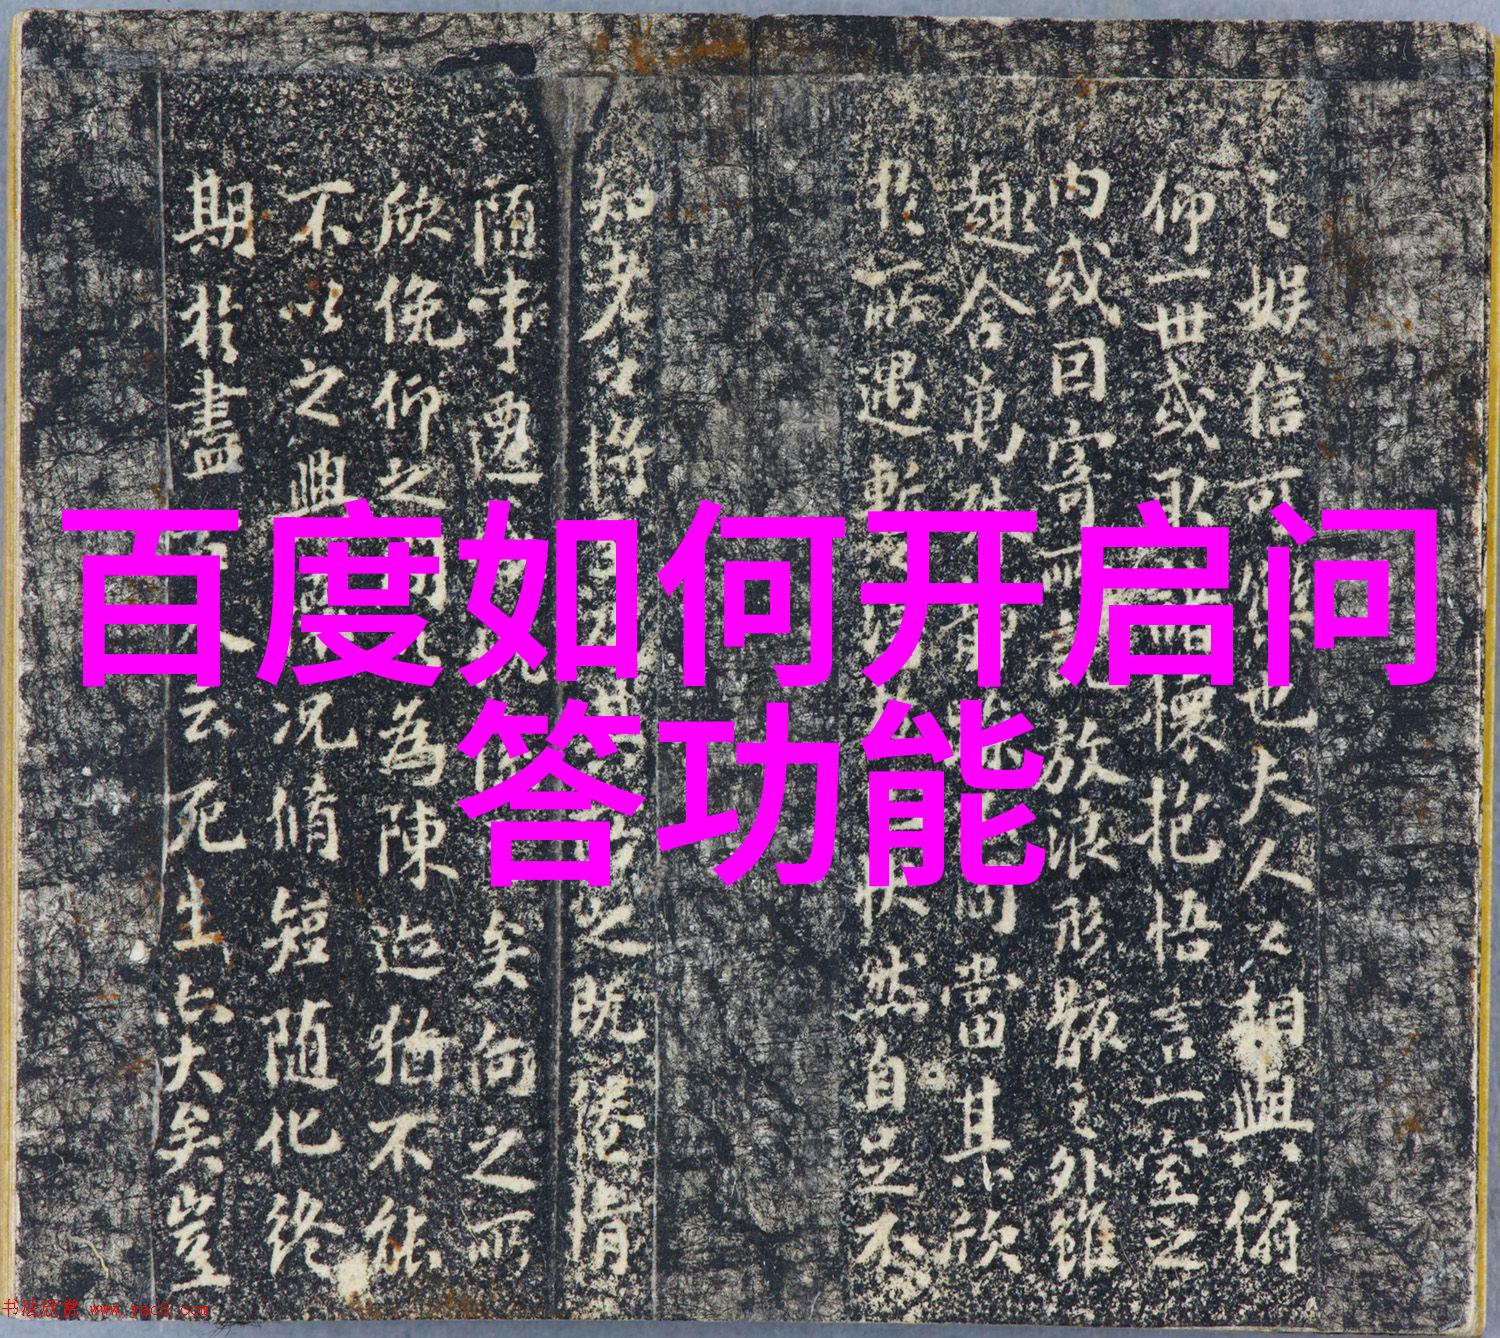 百度如何开启问
答功能
之娱信可樂也夫人之相與俯
仰一世或取諸懷抱悟言一室之
内或因寄所放浪形骸之外雖
趣舍萬殊同當其欣
於所遇暫怏然自足不
知老之將之既惓情
隨事遷矣向之所
欣俛仰之間為陳迹猶不能
不以之興况脩短隨化終
期於盡人云死生亡大矣豈
书法欣赏 www.yac8.com